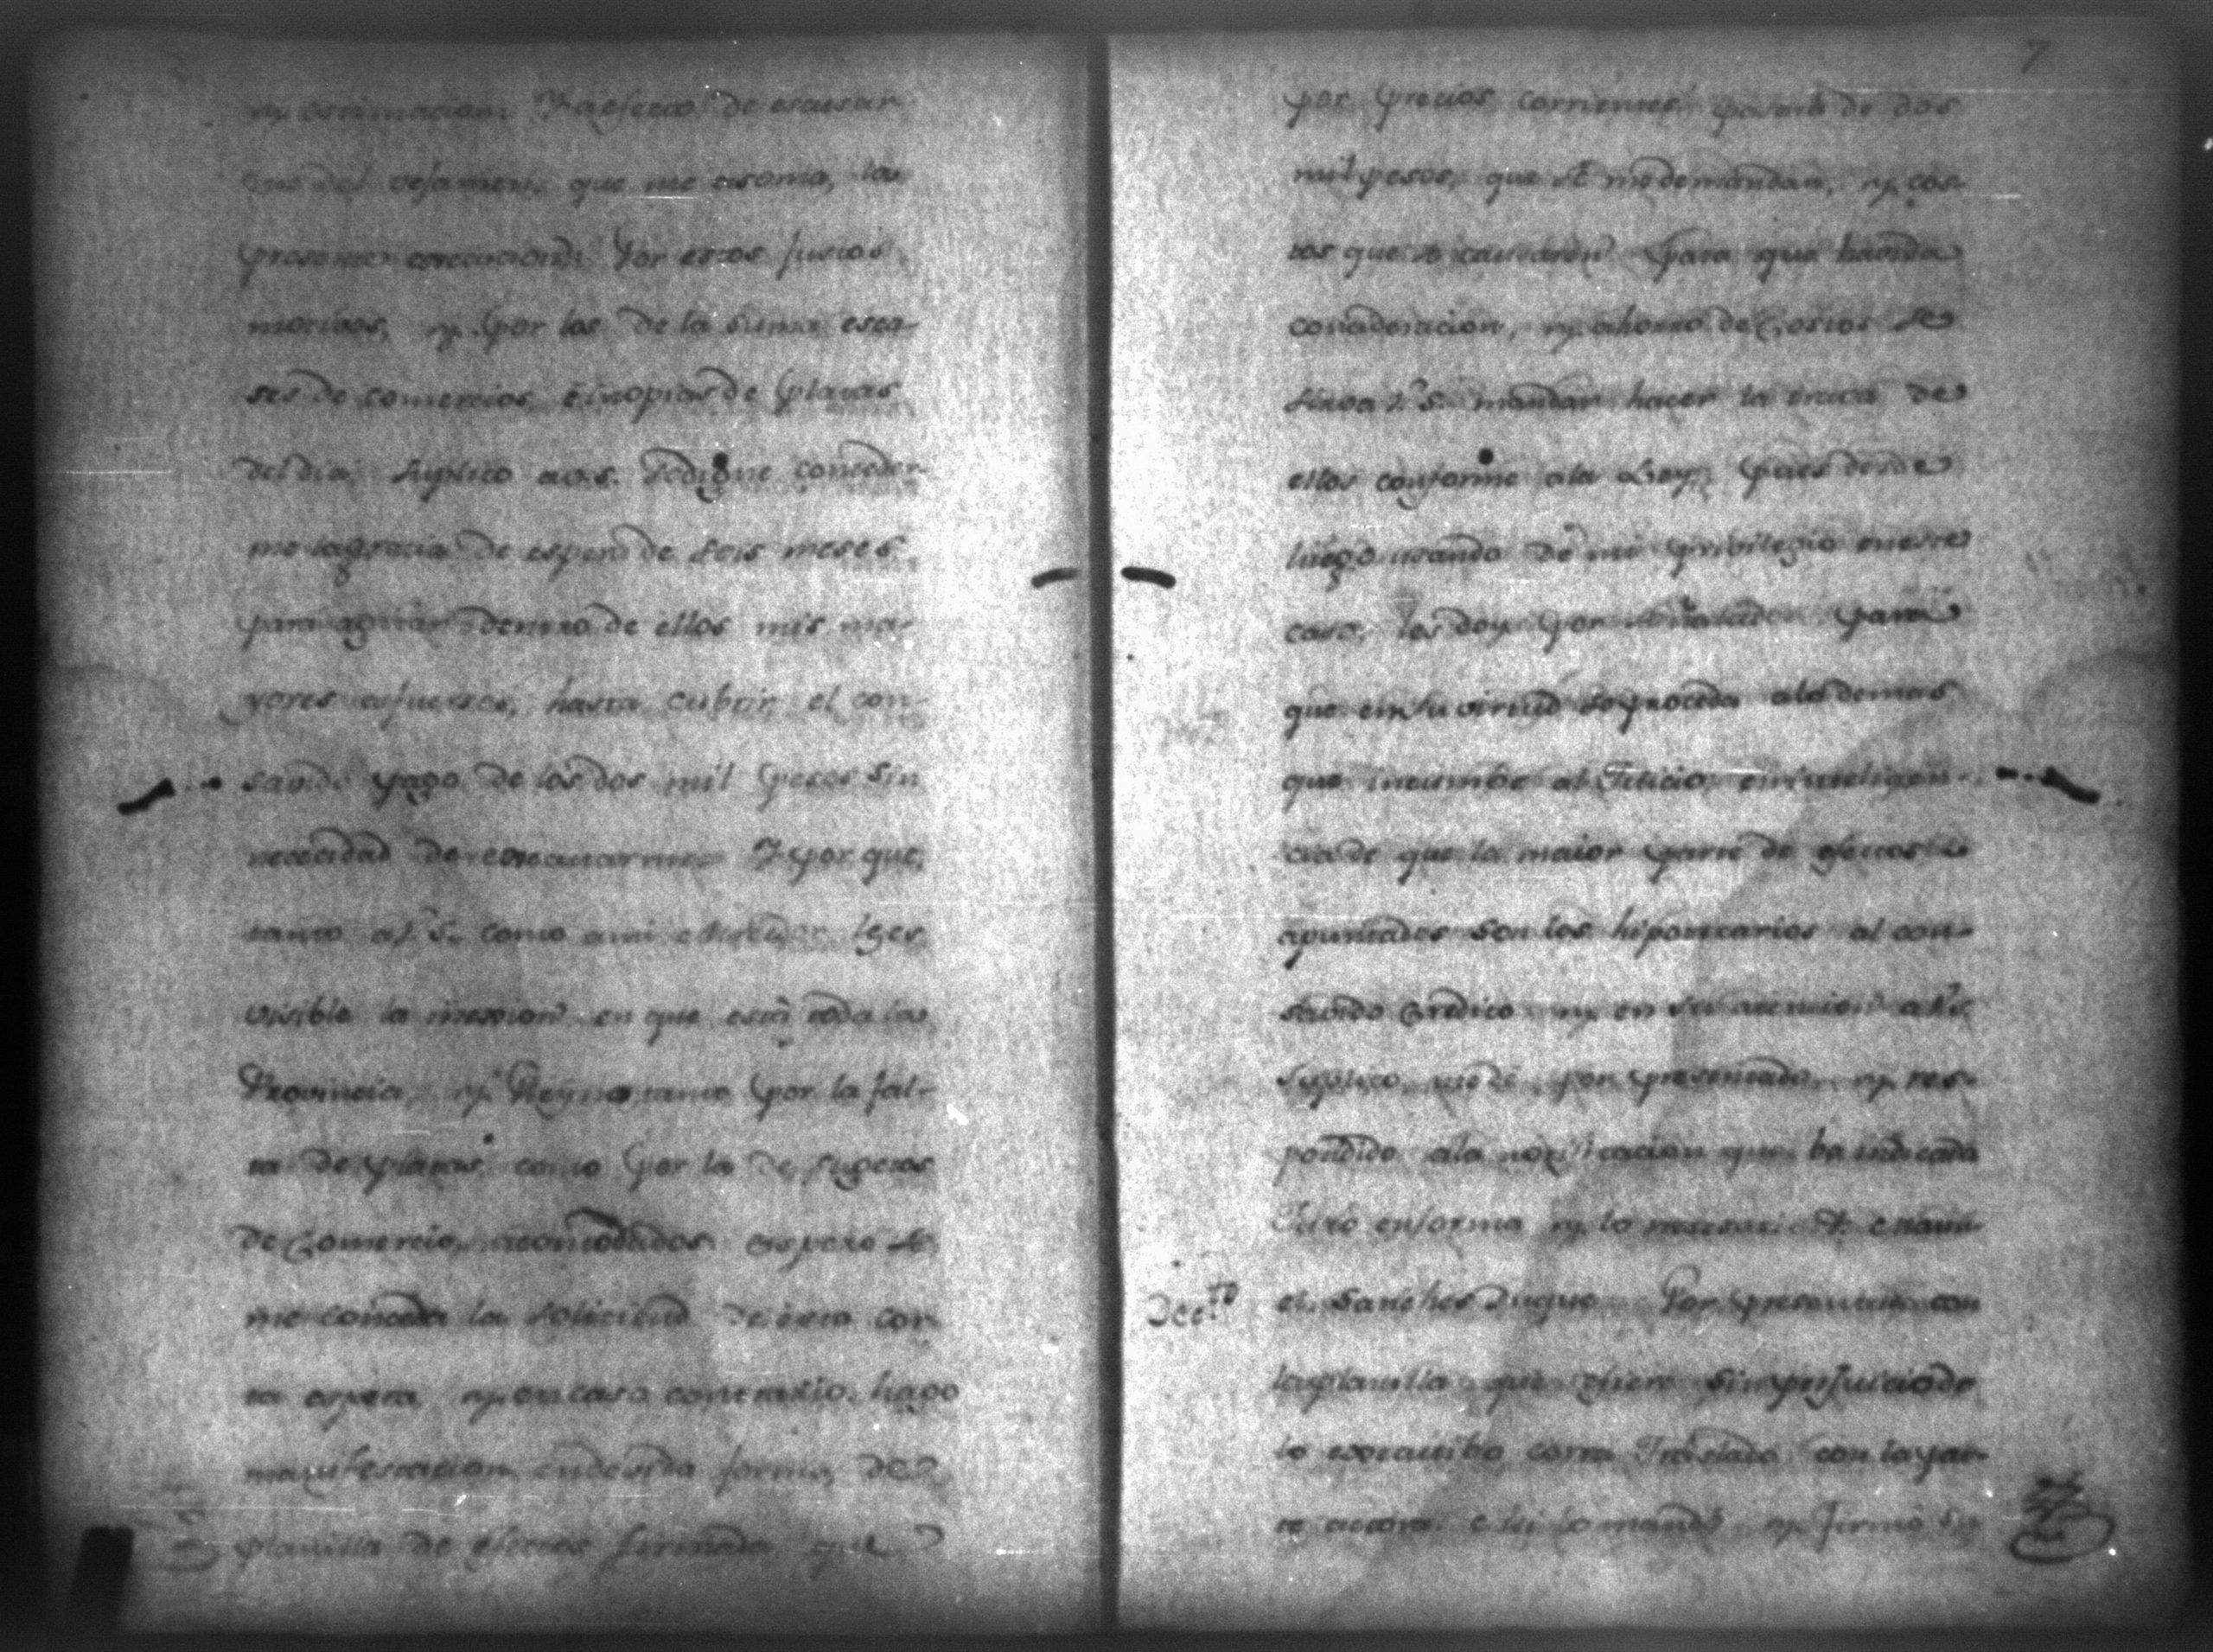 y estimacion Y aefecto de escusar
me del vejamen, que me asoma, la
presente execucion. Por estos justos
motivos, y por los de la suma esca-
ses de comercios, è inopias de platas
del dia, Suplico a v.s. se digne conceder-
me la gracia de espera de seis meses
para agitar dentro de ellos mis ma-
yores esfuersos, hasta cubrir el con-
savido pago de los dos mil pesos sin
nececidad de executarme. Y por que,
tanto a V.S. como ami le es
visible la en que está toda la
Provincia, y Reyno tanto por la fal-
ta de platas, como por la de sugetos
de Comercio, acomodados. espero se
me conceda la solicitud de esta cor-
ta espera y en caso contrario, hago
manifestacion en devida forma, de
planilla de efectos firmada que
7
por precios corrientes pasara de dos
mil pesos, que se me demandan, y cos-
tos que se causaren para que havida
concideracion, y ahorro de Costos se
sirva V.S. mandar hacer la de
ellos conforme ala Ley, pues desde
luego usando de mi privilegio en este
caso, los doy por para
que en su virtud se proceda alo demas
que incumbe al Juicio, en inteligen-
cia de que la maior parte de efectos
apuntados son los hipotecarios al con-
savido credito y en su atencion a V.S.
Suplico por presentado, y res-
pondido ala notificacion que ha indicada
Juro en forma y lo nesesario &.
el Sanches Duque Por presentado con
Dec.to
la planilla que refiere sin perjuicio de
lo executibo corra Traslado con la par-
te actora. e lo mandó y firmó Su